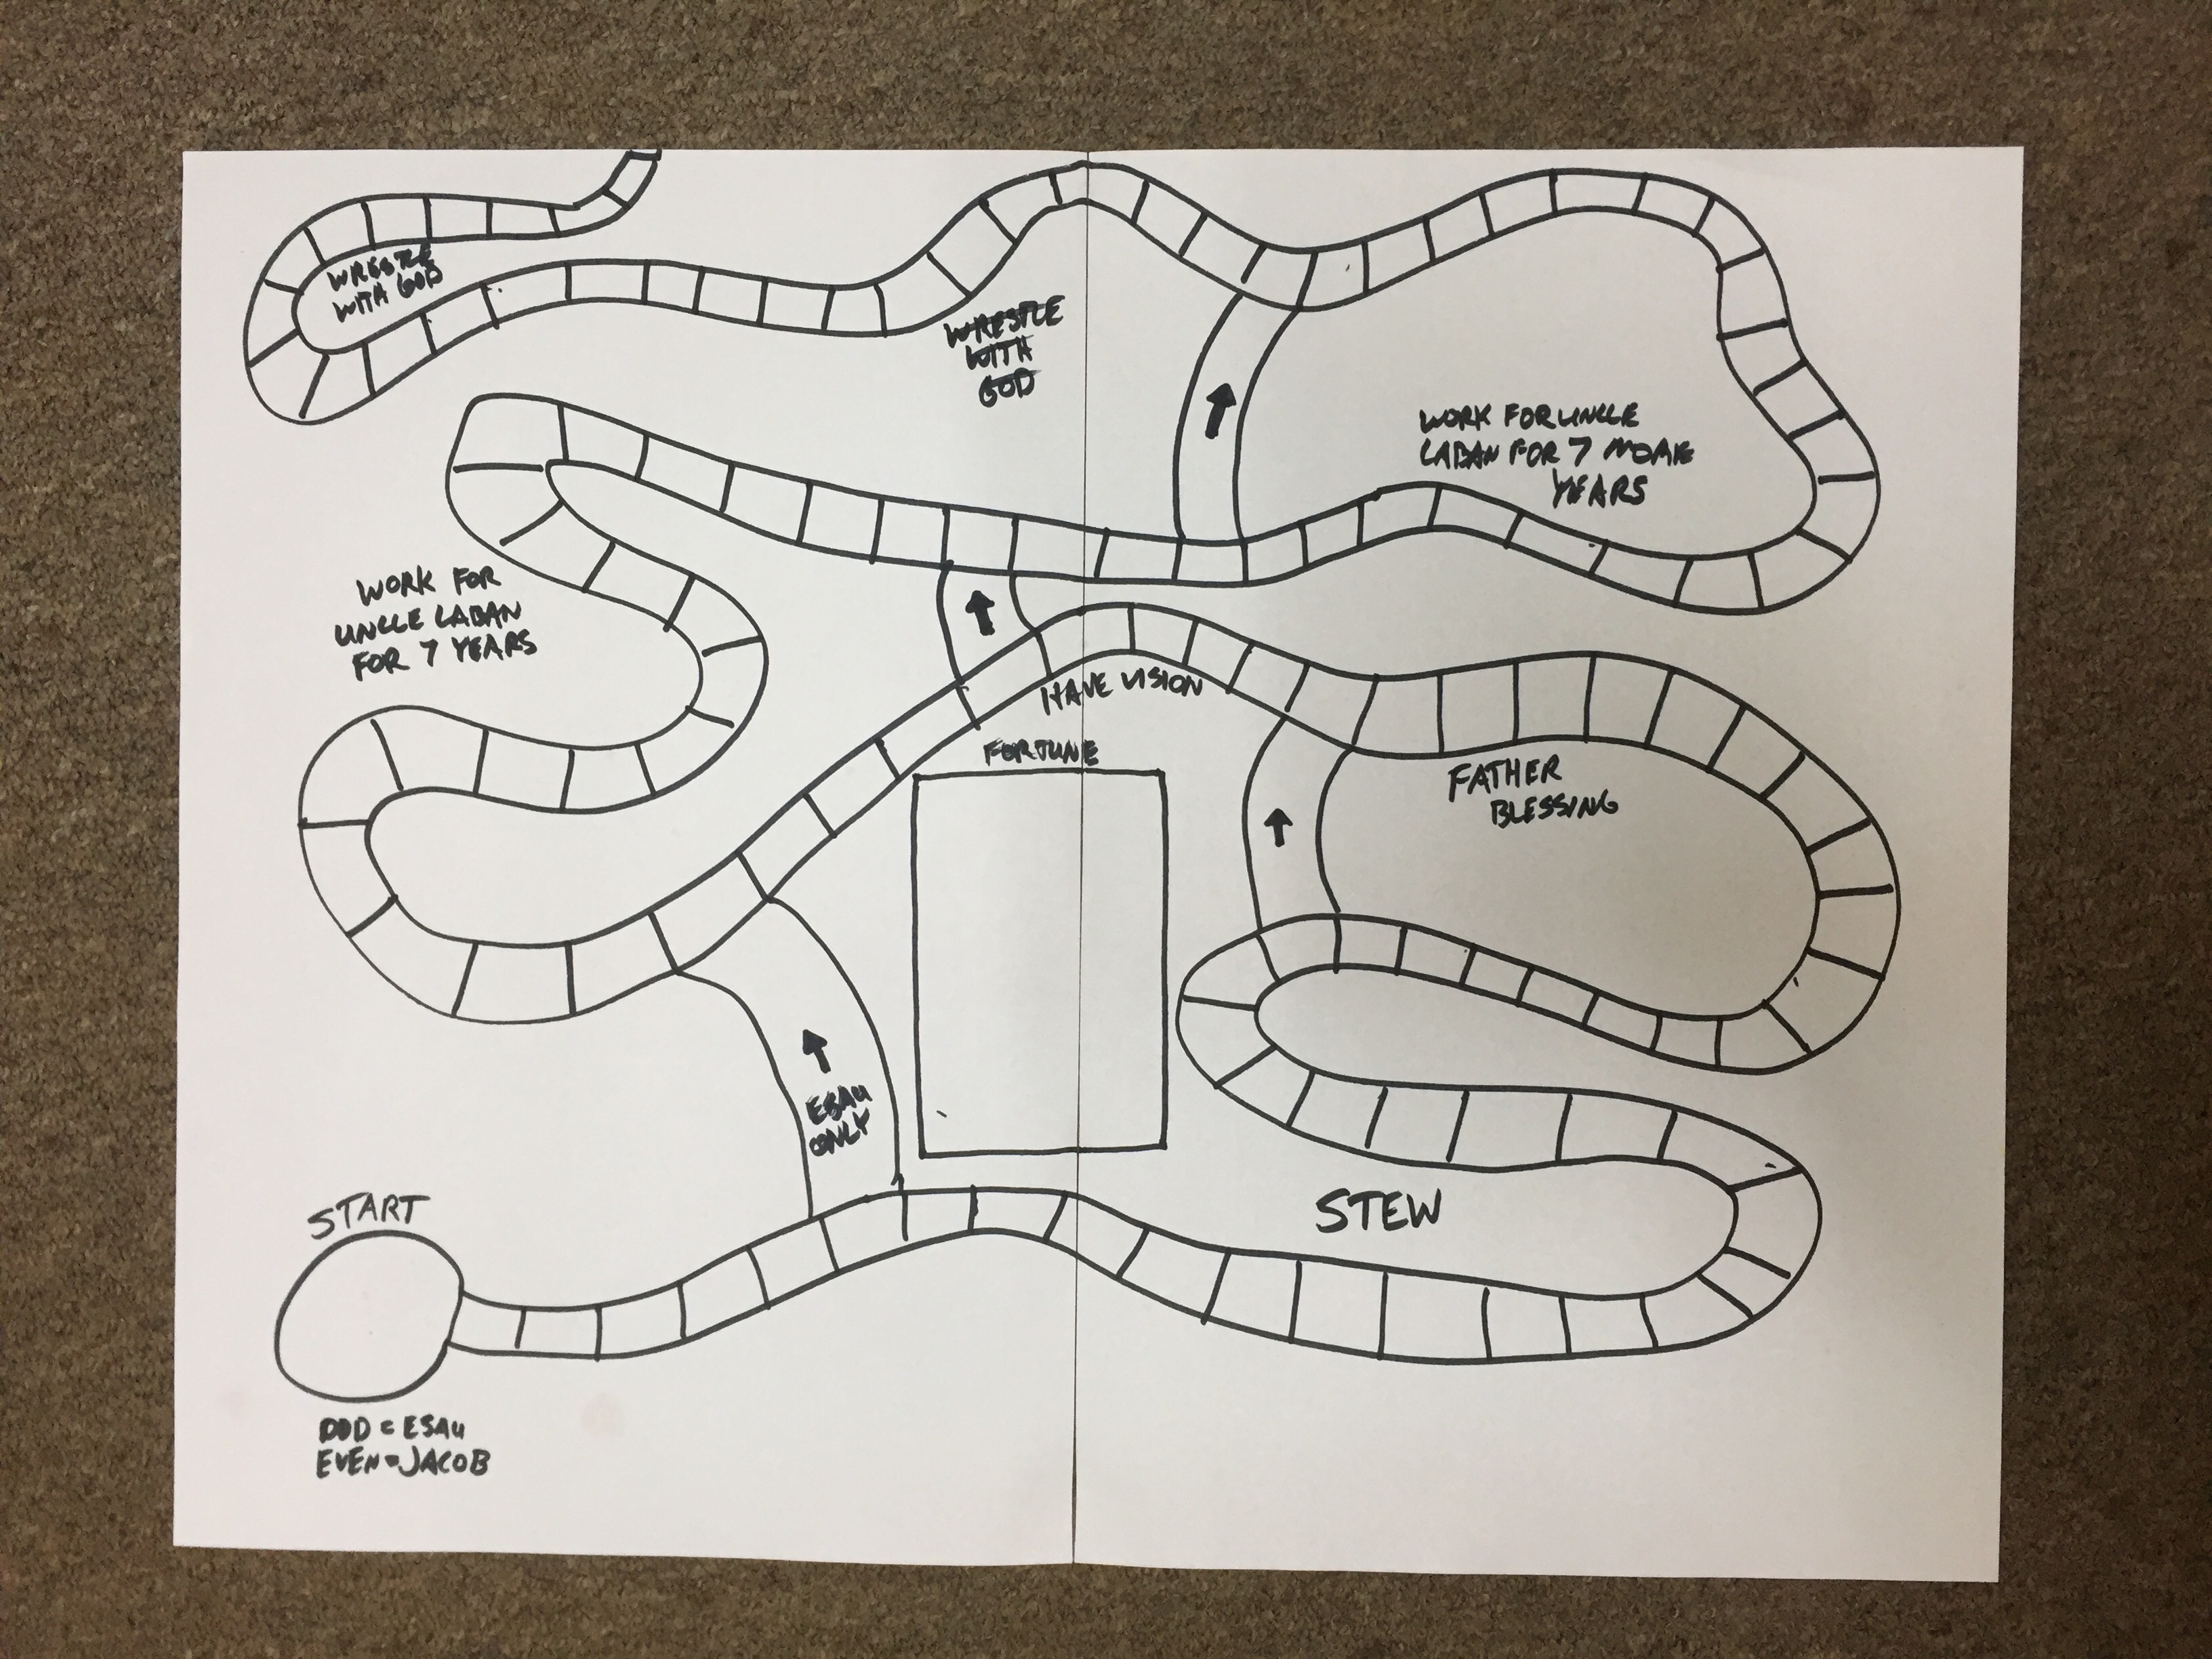 WRESTLE
WITH GOD
WRESTLE
WITH
GOD
WORK FOR UNCLE
LABAN FOR 7 MORE
YEARS
WORK FOR
UNCLE LABAN
FOR 7 YEARS
HAVE VISION
FORTUNE
FATHER
BLESSING
ESAU
ONLY
STEW
START
ODD = ESAU
EVEN = JACOB